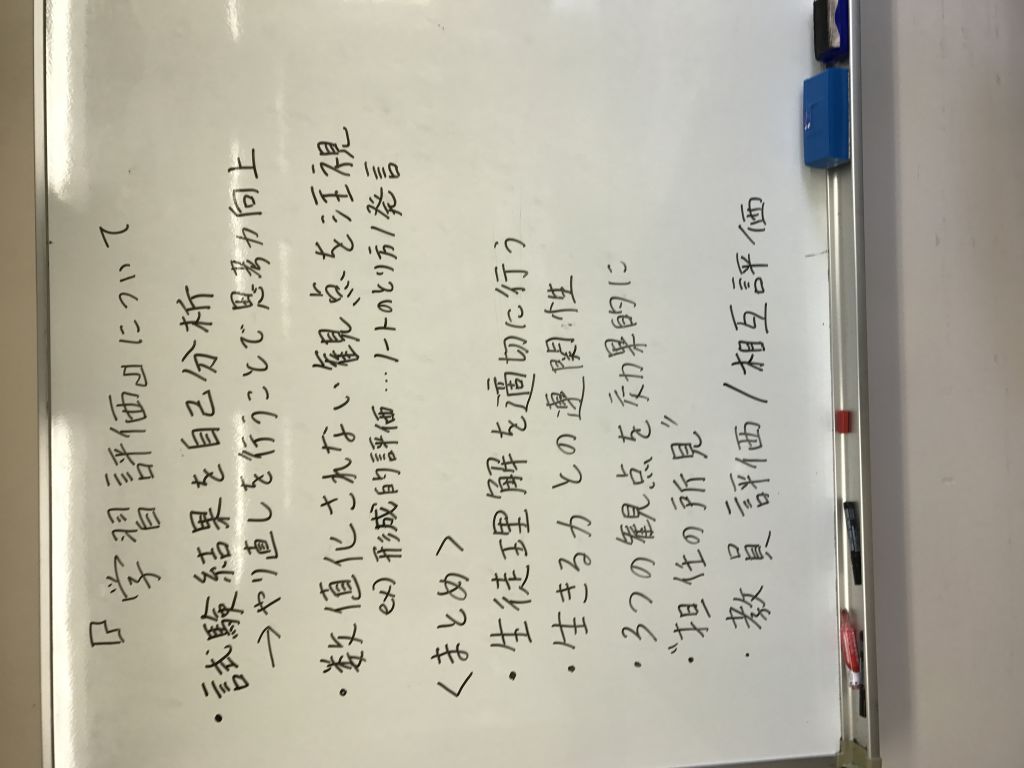 『学習評価』について
・試験結果を自己分析
→やり直しを行うことで思考力向上
・数値化されない観点を注視
ex) 形成的評価…ノートのとり方/発言
<まとめ>
・生徒理解を適切に行う
・生きる力との連関性
・3つの観点を効果的に
"担任の所見"
・教員評価/相互評価